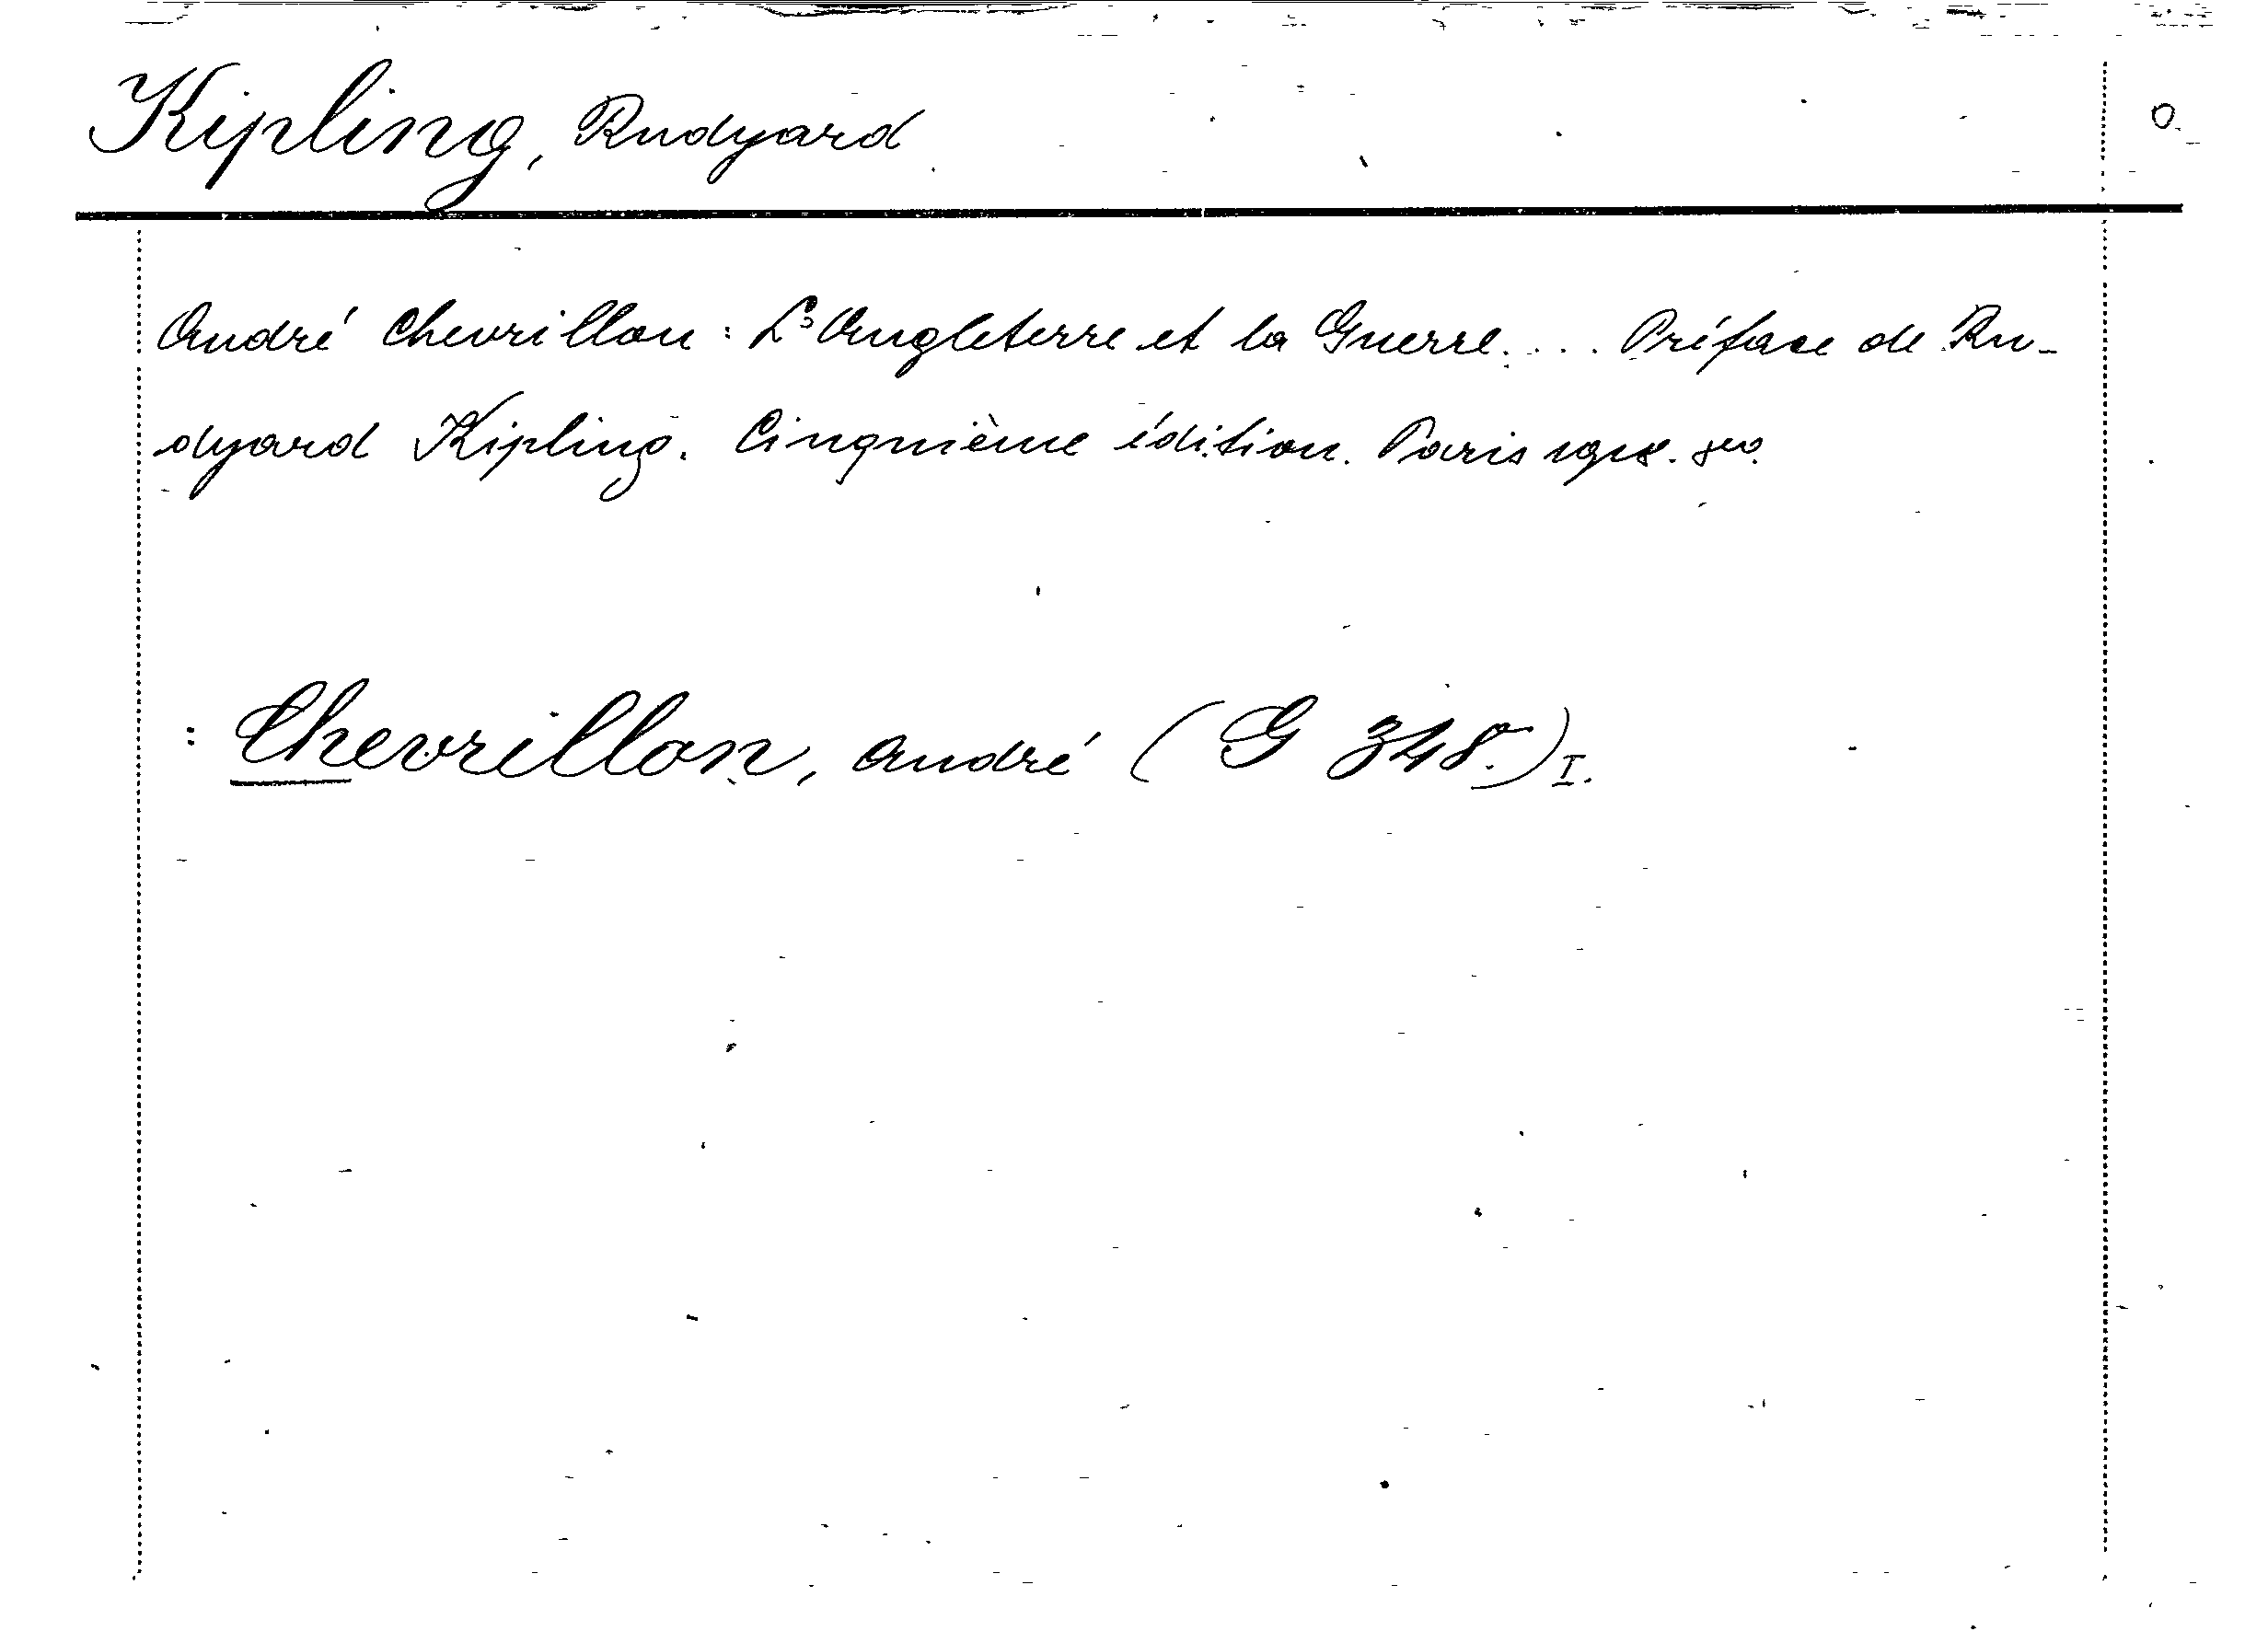 Kipling, Rudyard
O.
André Chevrillon: L'Angleterre et la Guerre.... Préface de Ru-
dyard Kipling. Cinquième édition. Paris 1918. 8vo.
: Chevrillon, André (G 348.) I.